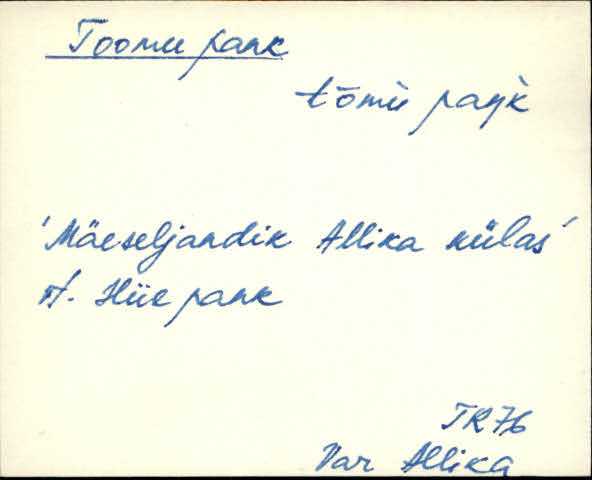 Toomu pank
tōmù paŋ̀k
'Mäeseljandik Allika külas'
vt. Hiie pank
TR76
Var Allika